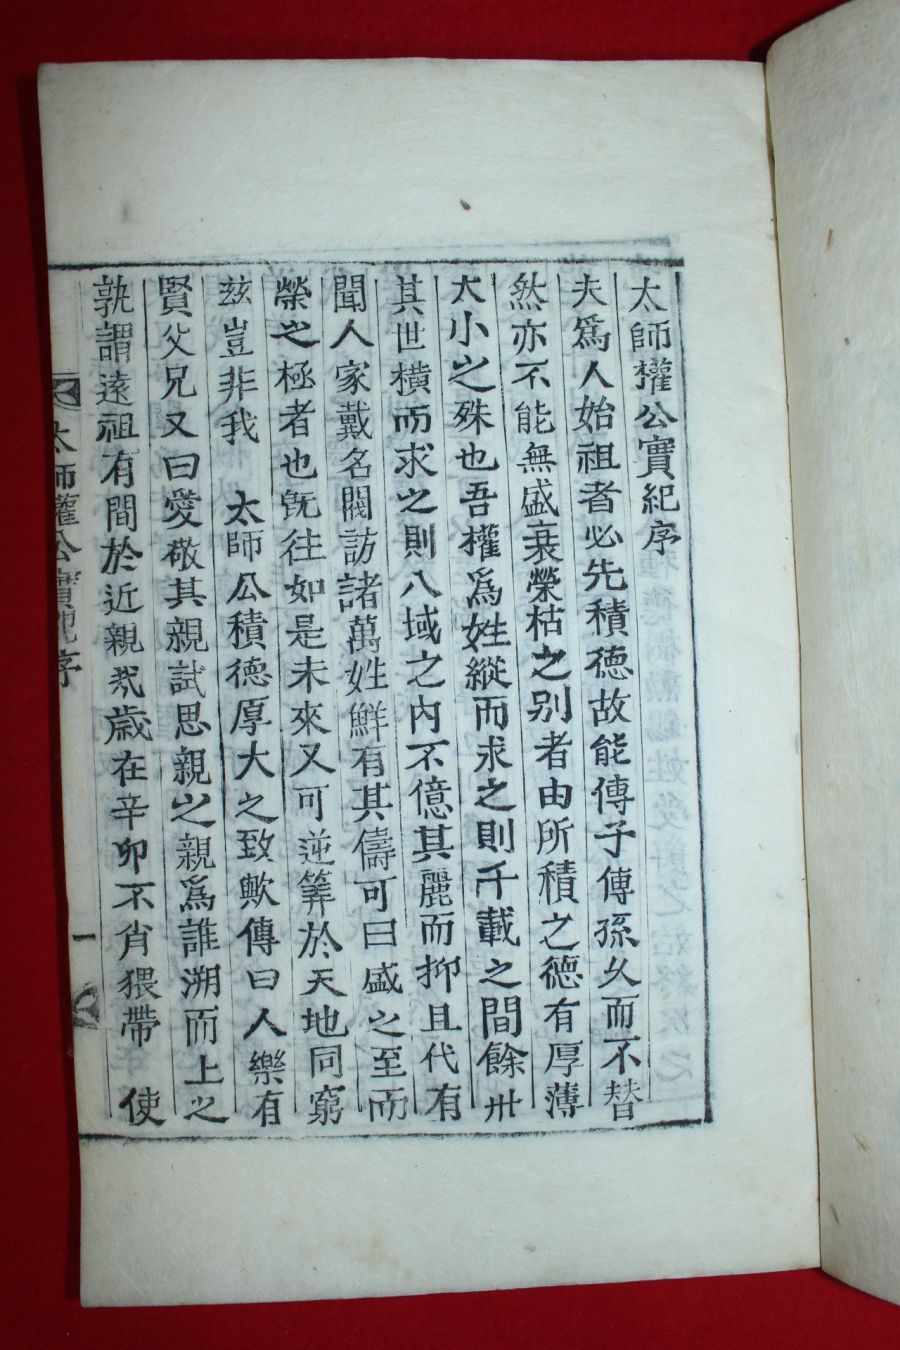 太師權公實紀序
夫爲人始祖者必先積德故能傳子傳孫久而不替
然亦不能無盛衰榮枯之别者由所積之德有厚薄
大小之殊也吾權爲姓縱而求之則千載之間餘卅
其世橫而求之則八域之內不億其麗而抑且代有
聞人家戴名閥訪諸萬姓鮮有其儔可曰盛之至而
榮之極者也旣往如是未來又可逆筭於天地同窮
玆豈非我　太師公積德厚大之致歟傳曰人樂有
賢父兄又曰愛敬其親試思親之親爲誰溯而上之
孰謂遠祖有間於近親㢤歲在辛卯不肖猥帶　使
太師權公實紀序
一